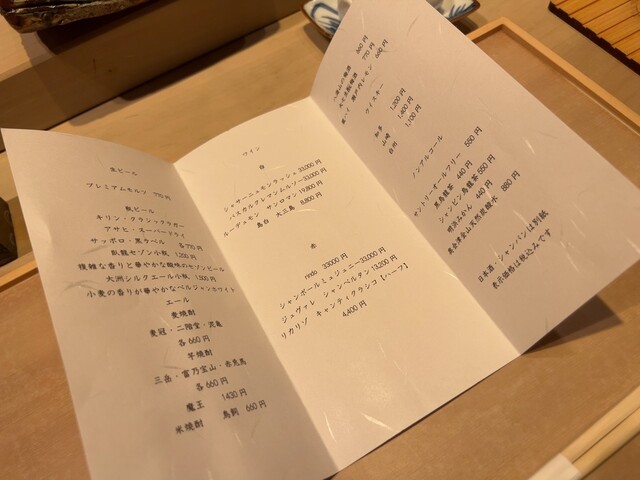 生ビール
プレミアムモルツ 770円
瓶ビール
キリン・クラシックラガー
アサヒ・スーパードライ
サッポロ・黒ラベル 各770円
臥龍セゾン小瓶 1,200円
複雑な香りと華やかな酸味のセゾンビール
大洲シルクエール小瓶 1,000円
小麦の香りが華やかなベルジャンホワイト
エール
麦焼酎
麦冠・二階堂・兼八
各660円
芋焼酎
三岳・富乃宝山・赤兎馬
各660円
魔王 1430円
米焼酎 鳥飼 660円
ワイン
白
シャサーニュモンラッシェ 33,000円
パスカルグレマンムルソー 33,000円
ルーデュモン マンロマン 19,800円
島白 大三島 8,800円
赤
rindo 33000円
シャンボールミュジュニー 33,000円
ジュヴァレ シャンベルタン 13,200円
リカリゾ キャンティクラシコ【ハーフ】
4,400円
660円
770円
660円
ウイスキー
知多 1,200円
山崎 1,800円
白州 1,100円
ノンアルコール
サントリーオールフリー 550円
黒烏龍茶 440円
ジャンピン烏龍茶 550円
明浜みかん 440円
奥会津金山天然炭酸水 880円
日本酒・シャンパンは別紙
表示価格は税込みです